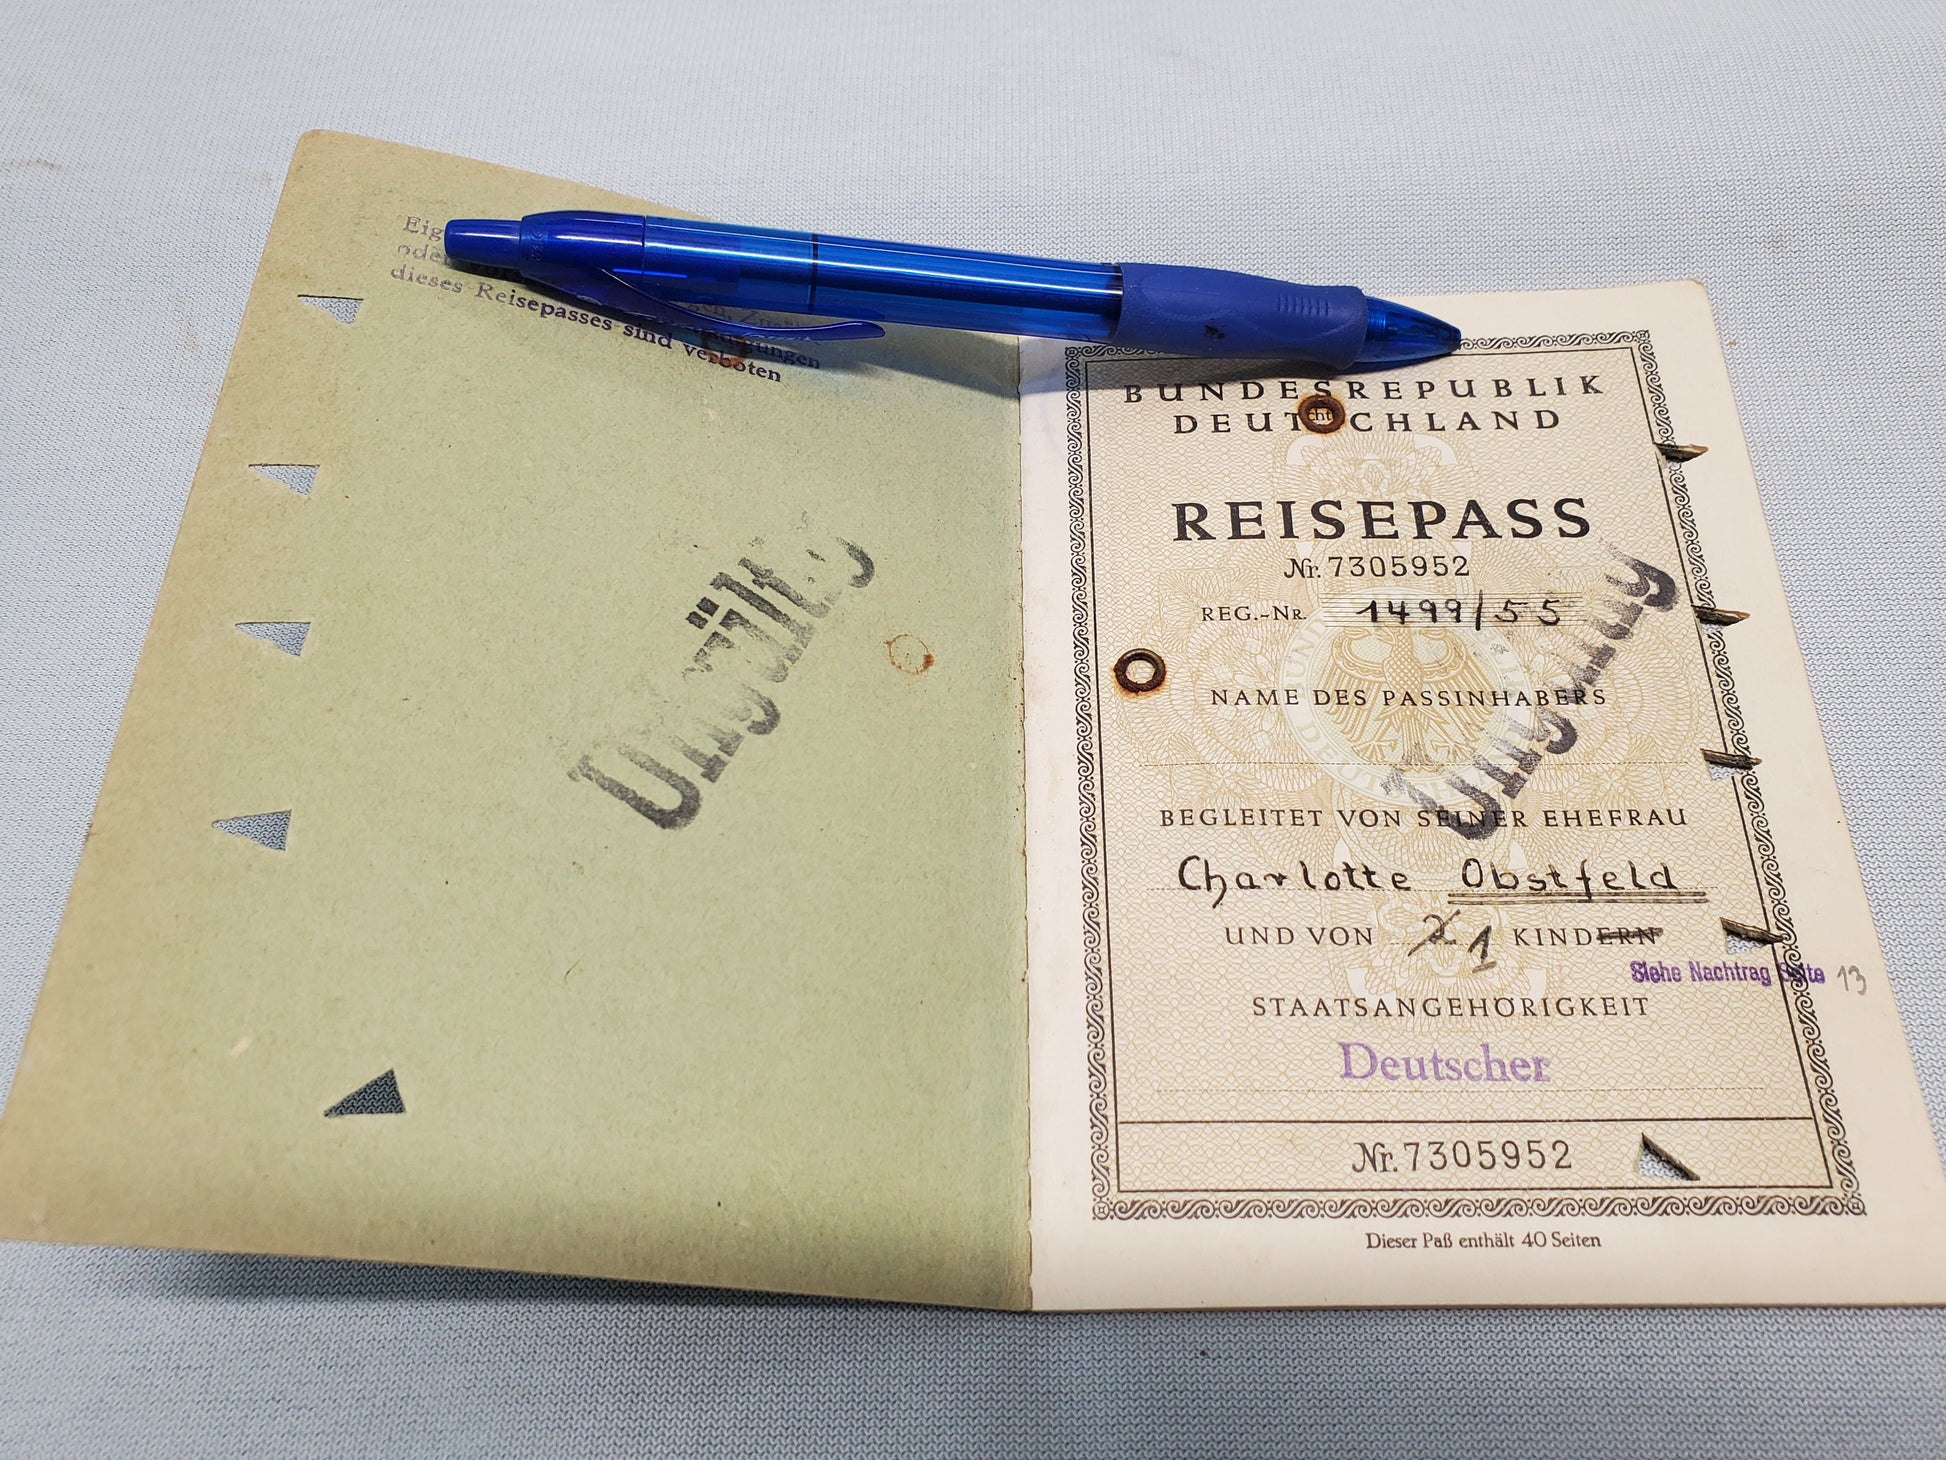 dieses Reisepasses sind verboten
Ungültig
BUNDESREPUBLIK
DEUTSCHLAND
REISEPASS
Nr. 7305952
REG.-NR. 1499/55
NAME DES PASSINHABERS
Ungültig
BEGLEITET VON SEINER EHEFRAU
Charlotte Obstfeld
UND VON 1 KINDERN
Siehe Nachtrag Seite 13
STAATSANGEHÖRIGKEIT
Deutscher
Nr. 7305952
Dieser Paß enthält 40 Seiten